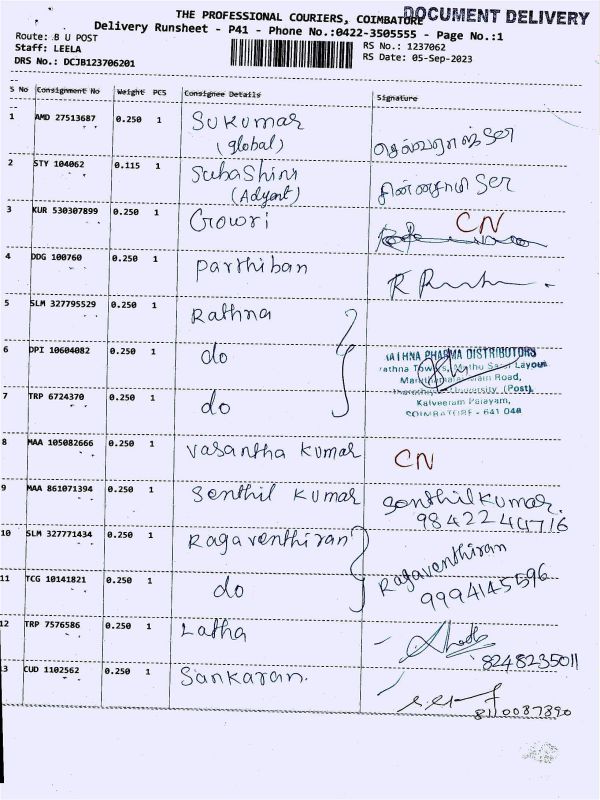 DOCUMENT DELIVERY
THE PROFESSIONAL COURIERS, COIMBATORE
Delivery Runsheet - P41 - Phone No.:0422-3505555 - Page No.:1
Route: B U POST
RS No.: 1237062
Staff: LEELA
RS Date: 05-Sep-2023
DRS No.: DCJB123706201
S No Consignment No Weight PCS Consignee Details Signature
1 AMD 27513687 0.250 1 Sukumar
(global) செல்வராஜ் Ser
2 STY 104062 0.115 1 Subashini
(Adyant) சின்னசாமி Ser
3 KUR 530307899 0.250 1 Gowri CN
4 DDG 100760 0.250 1 Parthiban
5 SLM 327795529 0.250 1 Rathna
6 DPI 10604082 0.250 1 do
RATHNA PHARMA DISTRIBUTORS
Rathna Towers, Muthu Layout
Main Road,
7 TRP 6724370 0.250 1 do
University (Post),
Kalveeram Palayam,
COIMBATORE - 641 046
8 MAA 105082666 0.250 1 Vasantha Kumar CN
9 MAA 861071394 0.250 1 Senthil Kumar Senthil Kumar.
10 SLM 327771434 0.250 1 Ragaventhiran Ragaventhiran
11 TCG 10141821 0.250 1 do 9994145596
12 TRP 7576586 0.250 1 Latha
8248235011
13 CUD 1102562 0.250 1 Sankaran.
8110087890